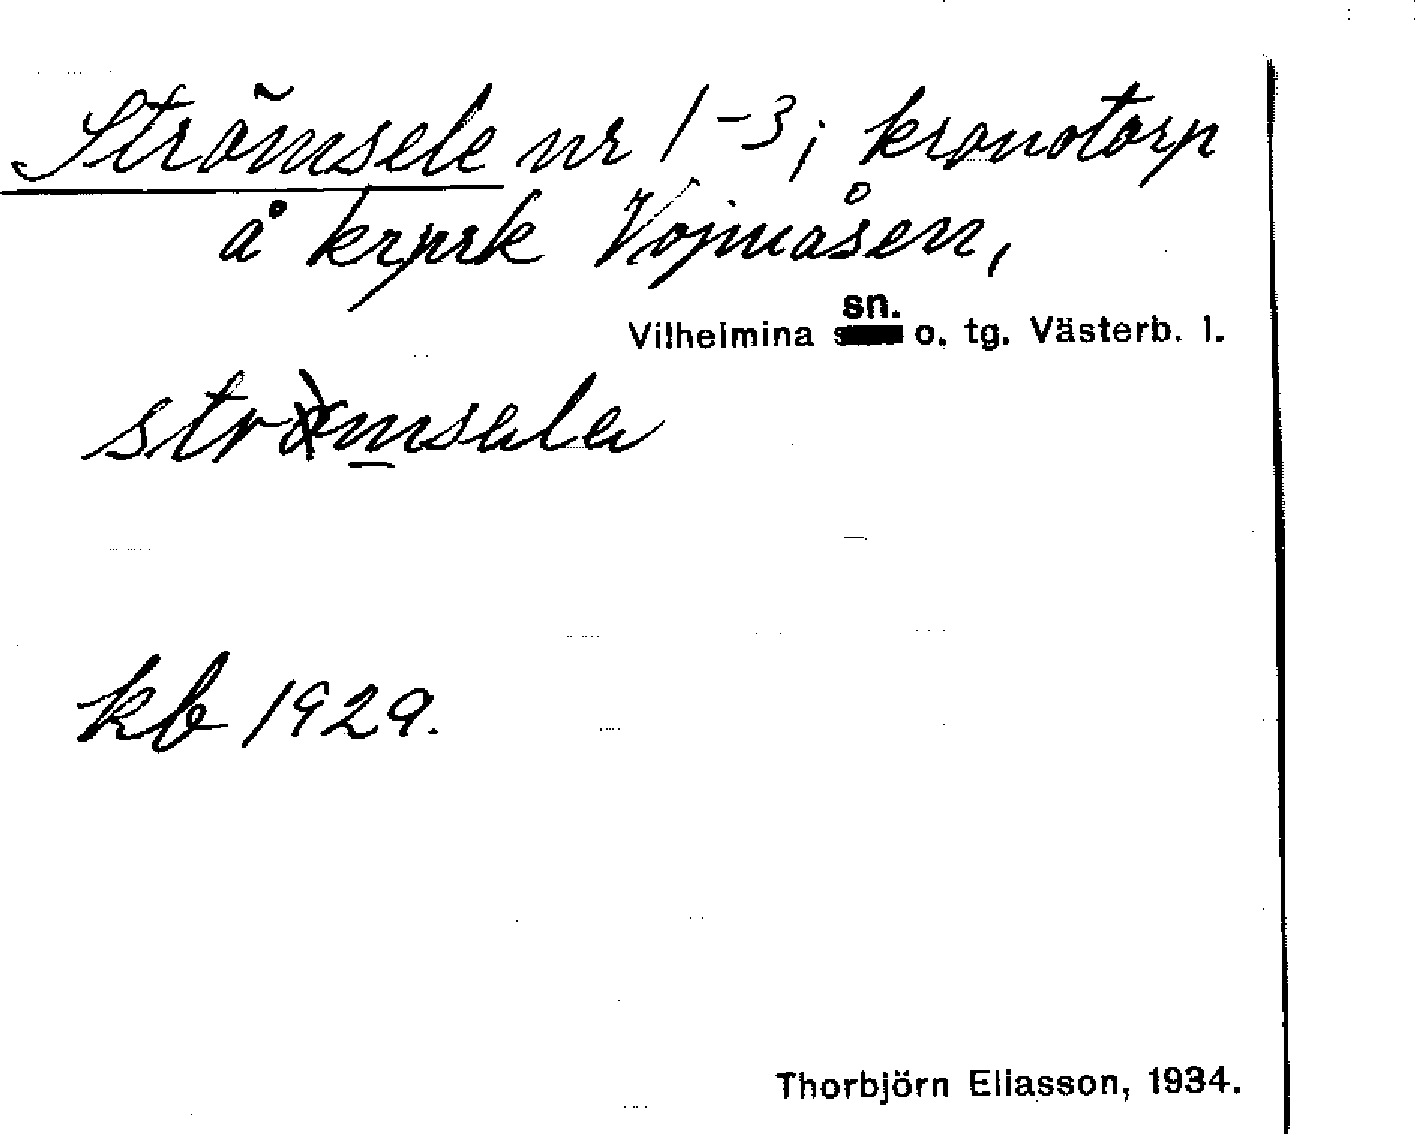 Strömsele nr 1-3; kronotorp
å krprk Vojmåsen,
sn.
Vilhelmina o. tg. Västerb. l.
kb 1929.
Thorbjörn Eliasson, 1934.